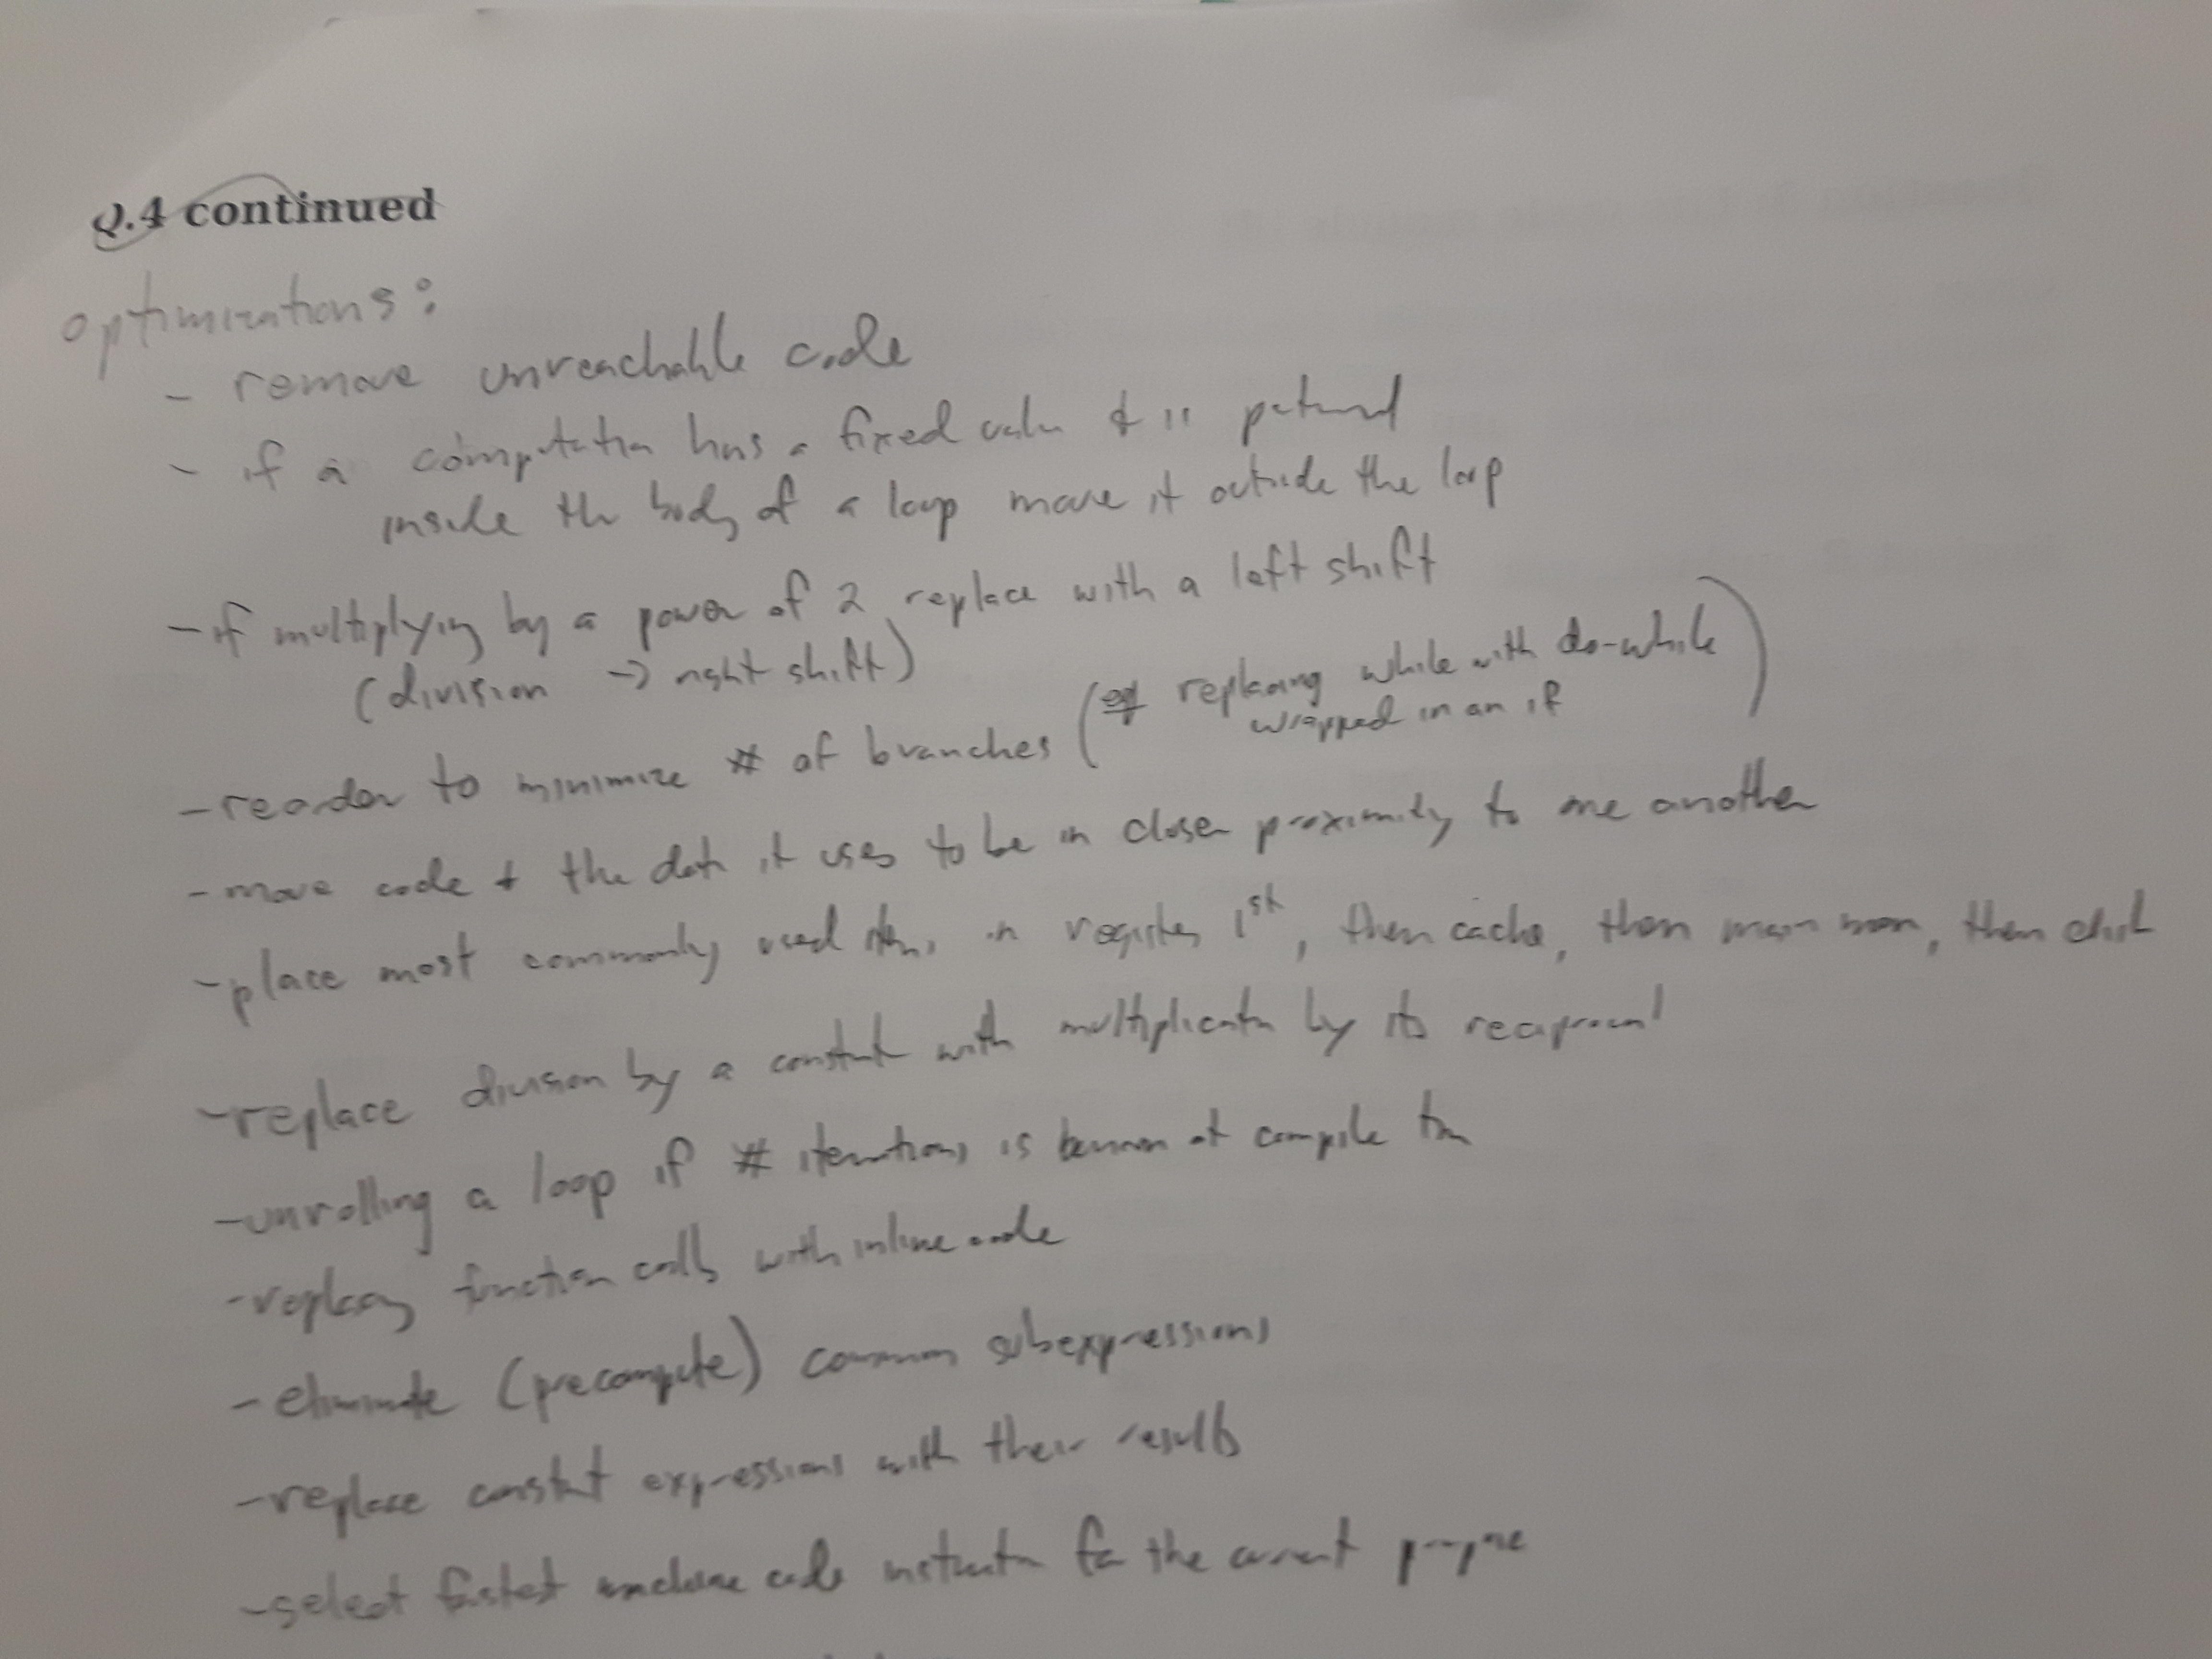 Q.4 continued
optimizations:
- remove unreachable code
- if a computation has a fixed value & is performed
inside the body of a loop move it outside the loop
- if multiplying by a power of 2 replace with a left shift
(division → right shift)
- reorder to minimize # of branches (eg replacing while with do-while
wrapped in an if)
- move code + the data it uses to be in closer proximity to one another
- place most commonly used items in registers 1st, then cache, then main mem, then disk
- replace division by a constant with multiplication by its reciprocal
- unrolling a loop if # iterations is known at compile time
- replacing function calls with inline code
- eliminate (precompute) common subexpressions
- replace constant expressions with their results
- select fastest machine code instruction for the current purpose